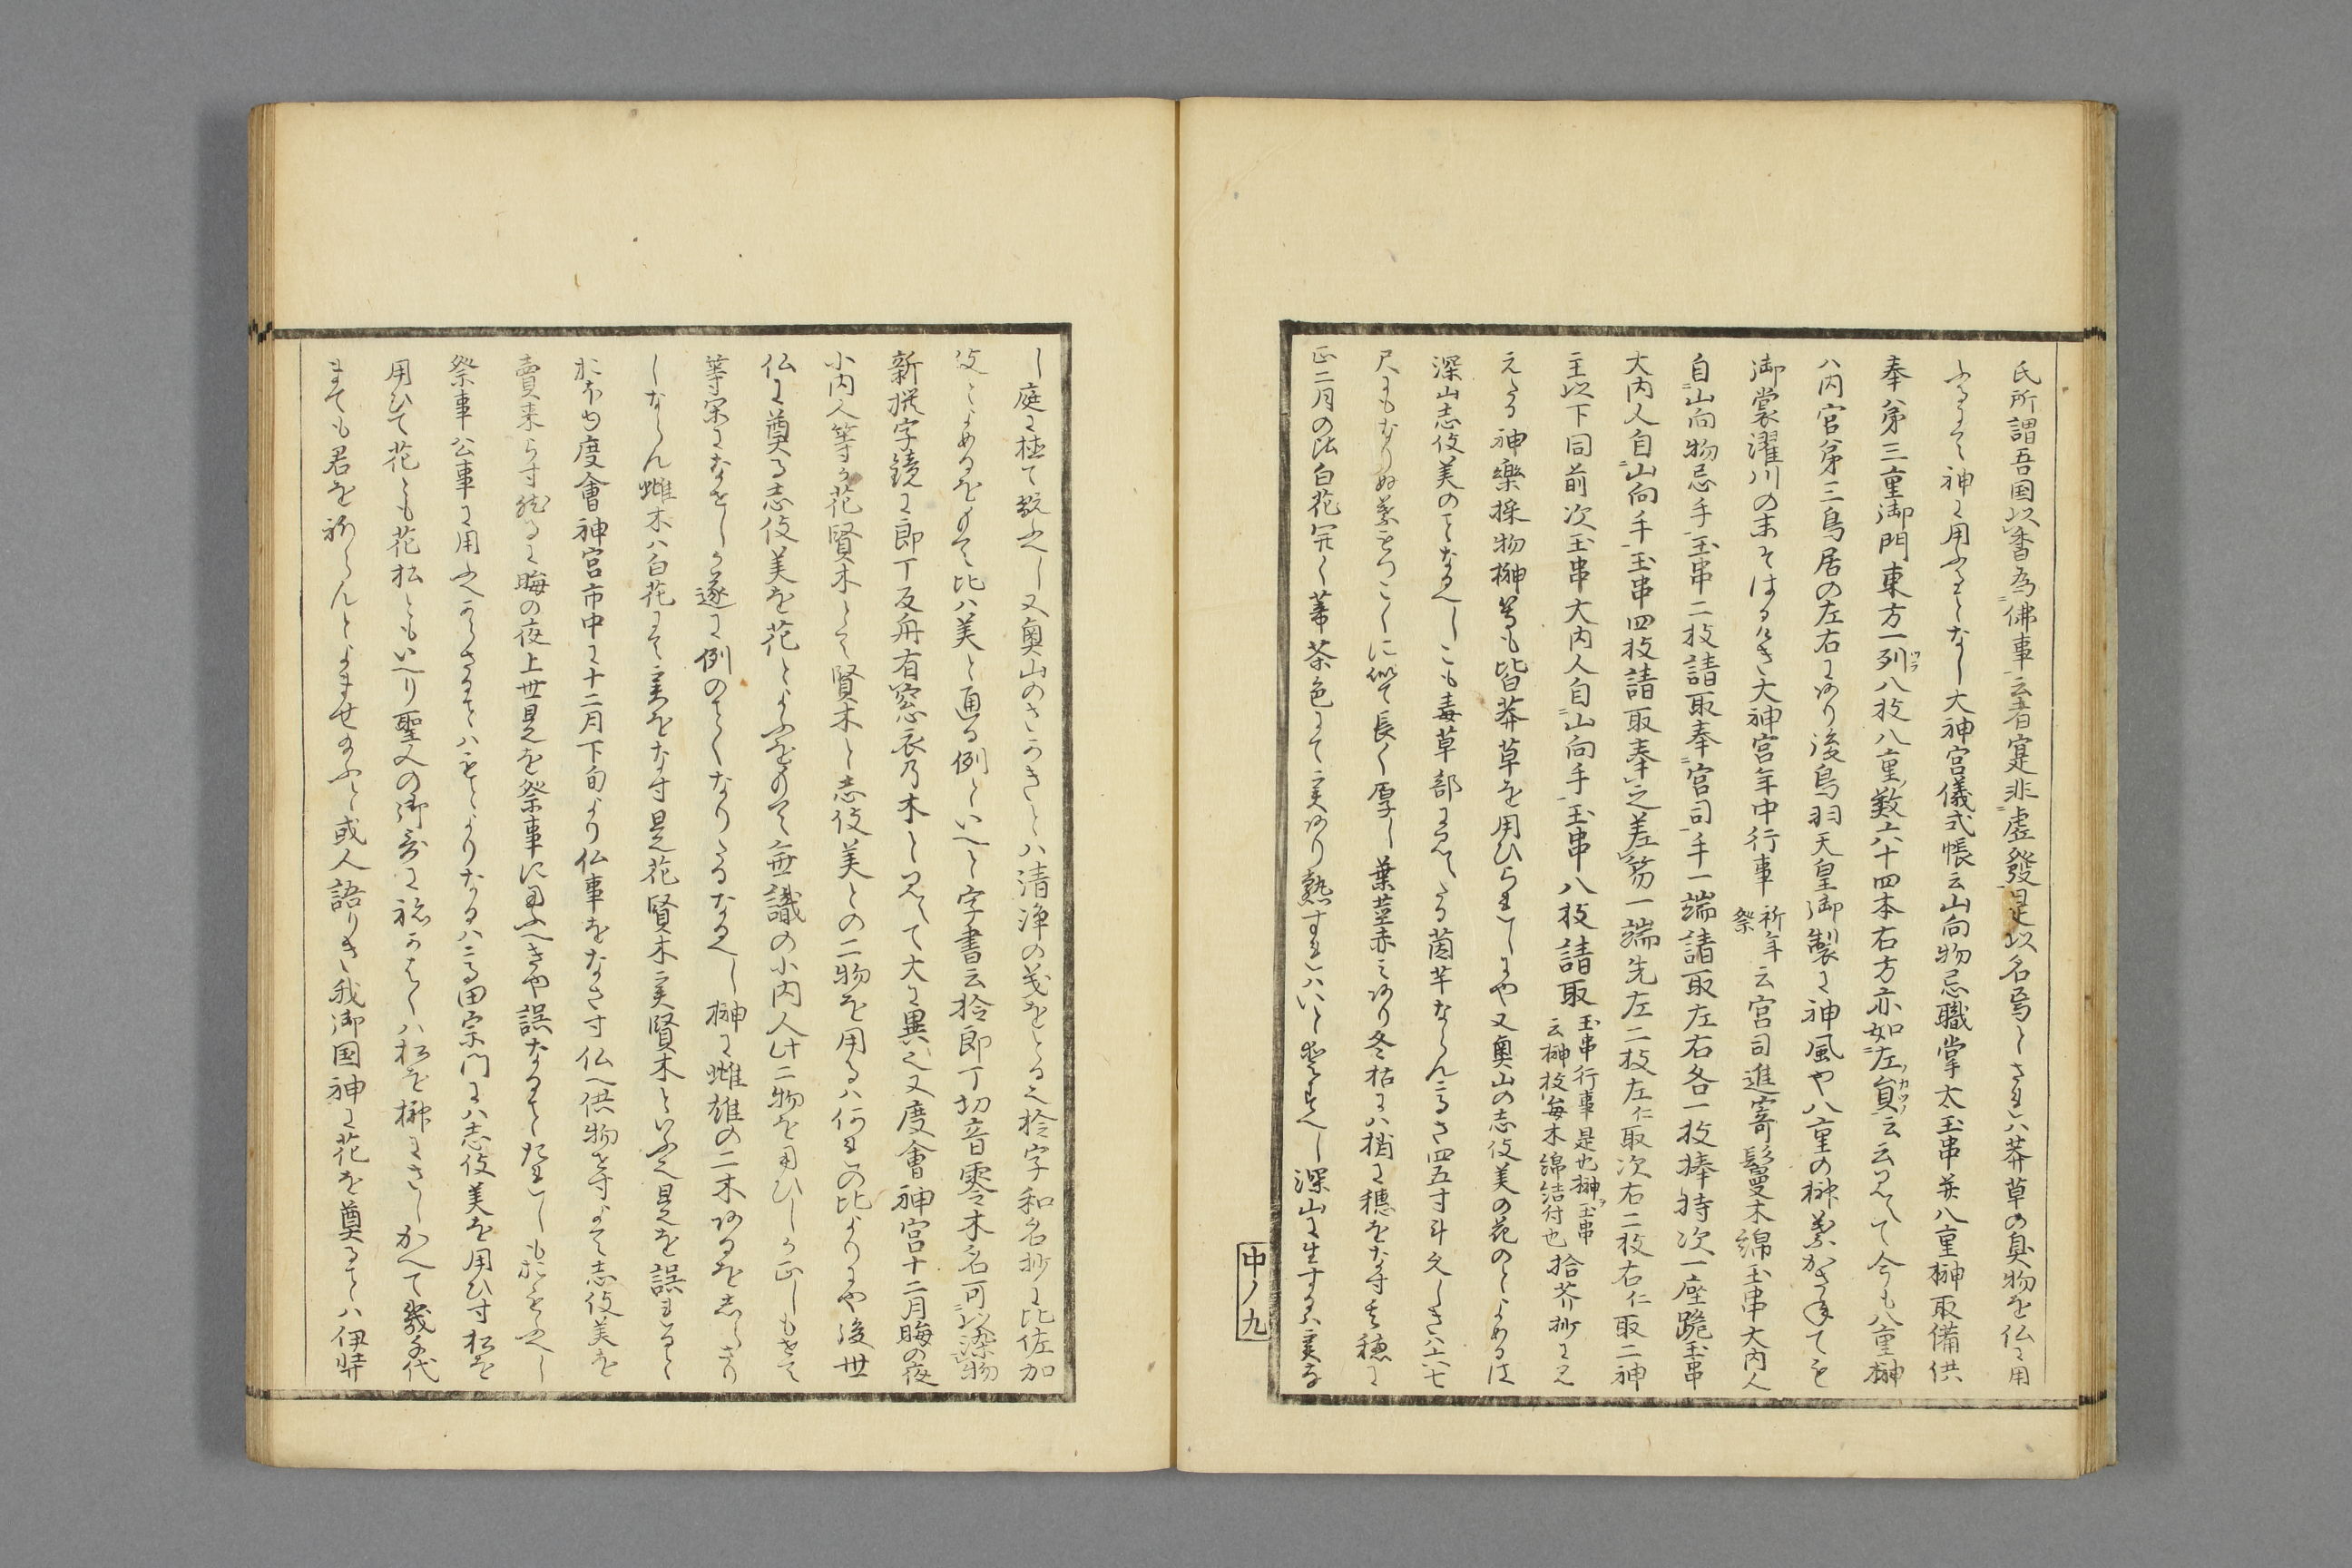 氏所謂吾国以香為佛事云者寔非虚發是以名焉とされハ莽草の臭物を仏に用
神に用ふることなし大神宮儀式帳云山向物忌職掌太玉串并八重榊取備供
奉八第三重御門東方一列八枝八重數六十四本右方亦如左員云云見へて今も八重榊
八内宮第三鳥居の左右にあり後鳥羽天皇御製に神風や八重の榊葉かさねてを
御裳濯川の末そはるけき大神宮年中行事祈年祭云宮司進寄鬘木綿玉串大内人
自山向物忌手玉串二枝請取奉宮司手一端請取左右各一枝捧持次一座跪玉串
大内人自山向手玉串四枝請取奉之差笏一端先左二枝左仁取次右二枝右仁取二神
主以下同前次玉串大内人自山向手玉串八枝請取玉串行事是也榊玉串云榊枝每木綿結付也拾芥抄に見
えたる神樂採物榊等も皆莽草を用ひられしにや又奧山の志伎美の花のとよめるは
深山志伎美のことなるへしこも毒草部に見へたる茵芋ならん高さ四五寸斗久しきハ六七
尺にもなりぬ葉もつこくに似て長く厚し葉茎赤ミあり冬枯に八梢に穂をなす其穂に
正二月の比白花開く蒂茶色にて実あり熟すれハいと赤し深山に生するハ実な
し庭に植て能之し又奧山のさかきとハ清浄の義をとる之柃字和名抄に比佐加
伎とよめるをもて比ハ美と通る例といへと字書云柃郎丁切音零木名可以染物
新撰字鏡に郎丁反舟有窓衣乃木と見へて大に異之又度會神宮十二月晦の夜
小内人等か花賢木とて賢木と志伎美との二物を用るハ何れの比よりにや後世
仏に奠る志伎美を花とよふをのて無識の小内人此二物を用ひしか正しもせて
等閑になをしか遂に例のことくなりたるなるへし榊に雌雄の二木あるをしらさり
しならん雌木ハ白花にて実をなす是花賢木実賢木といふ之是を誤れると
おほゆ度會神宮市中に十二月下旬より仏事をなさす仏へ供物せすよて志伎美を
賣来らす然るに晦の夜上世是を祭事に用ふへきや誤なること
祭事公事に用之からさることハもとよりなるハ高田宗門にハ志伎美を用ひす松を
用ひて花とも花松ともいへり聖人の御哥に祢かはくハ松を榊にさしかへて幾千代
まても君を祈らんとよませ給ふと或人語りき我御国神に花を奠ることハ伊弉
中ノ九